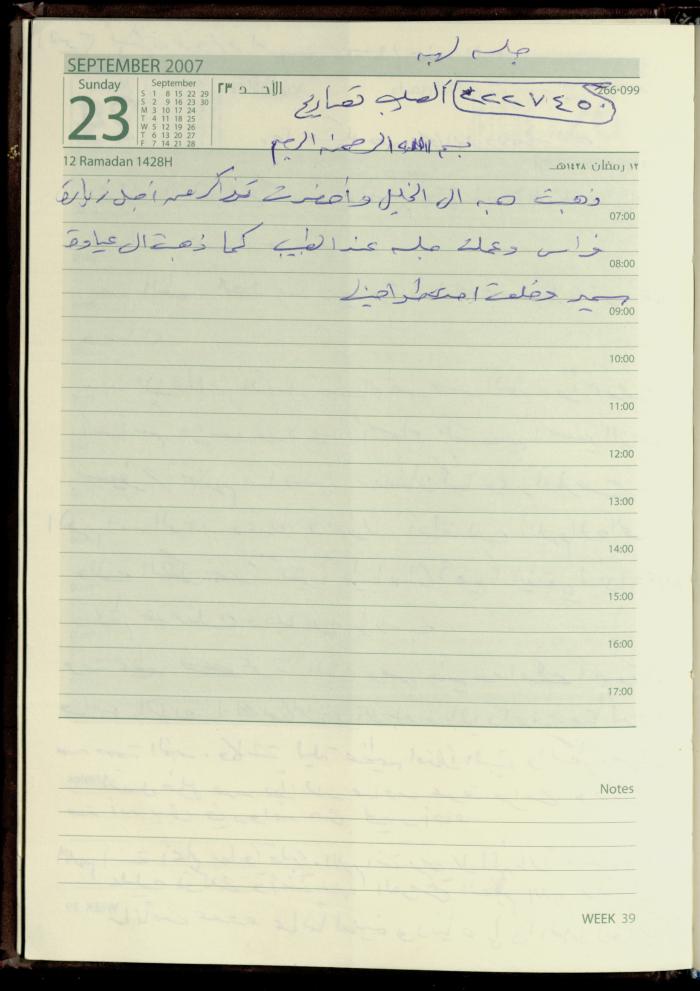 جلسه لهبه
SEPTEMBER 2007
Sunday
23
September
S 1 8 15 22 29
S 2 9 16 23 30
M 3 10 17 24
T 4 11 18 25
W 5 12 19 26
T 6 13 20 27
F 7 14 21 28
الأحد ٢٣
266-099
٢٢٢٧٤٥٠ الصليب تصاريح
بسم الله الرحمن الرحيم
12 Ramadan 1428H
١٢ رمضان ١٤٢٨هـ
ذهبت هبه الى الخليل واحضرت تذاكر من اجل زيارة
07:00
فراس وعملت جلسه عند الطبيب كما ذهبت الى عيادة
08:00
سمير وخلعت احد
09:00
10:00
11:00
12:00
13:00
14:00
15:00
16:00
17:00
Notes
WEEK 39